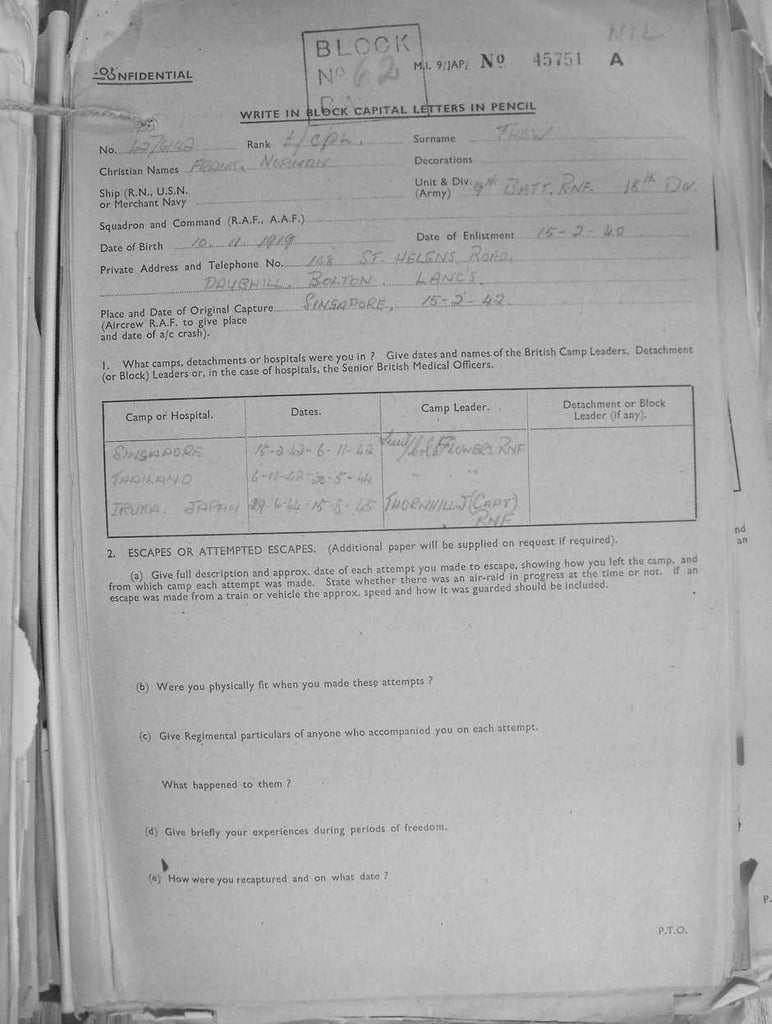 NIL
BLOCK
CONFIDENTIAL
Nº 62
M.I. 9/JAP/ Nº 45751 A
WRITE IN BLOCK CAPITAL LETTERS IN PENCIL
No. Rank L/CPL. Surname THEW
Christian Names FRANK. NORMAN Decorations
Ship (R.N., U.S.N. or Merchant Navy
Unit & Div. (Army) 9th BATT. RNF. 18th DIV.
Squadron and Command (R.A.F., A.A.F.)
Date of Birth 10. 11. 1919 Date of Enlistment 15-2-40
Private Address and Telephone No. 168 ST. HELENS ROAD.
DAUBHILL. BOLTON. LANCS.
Place and Date of Original Capture SINGAPORE, 15-2-42.
(Aircrew R.A.F. to give place
and date of a/c crash).
1. What camps, detachments or hospitals were you in ? Give dates and names of the British Camp Leaders, Detachment
(or Block) Leaders or, in the case of hospitals, the Senior British Medical Officers.
Camp or Hospital. Dates. Camp Leader. Detachment or Block Leader (if any).
SINGAPORE 15-2-42-6-11-42 Lieut/Col FLOWERS RNF
THAILAND 6-11-42-20-5-44 " "
IRUKA. JAPAN 29-6-44-15-8-45 THORNHILL J (CAPT)
RNF
2. ESCAPES OR ATTEMPTED ESCAPES. (Additional paper will be supplied on request if required).
(a) Give full description and approx. date of each attempt you made to escape, showing how you left the camp, and
from which camp each attempt was made. State whether there was an air-raid in progress at the time or not. If an
escape was made from a train or vehicle the approx. speed and how it was guarded should be included.
(b) Were you physically fit when you made these attempts ?
(c) Give Regimental particulars of anyone who accompanied you on each attempt.
What happened to them ?
(d) Give briefly your experiences during periods of freedom.
(e) How were you recaptured and on what date ?
P.T.O.
nd
an
P.